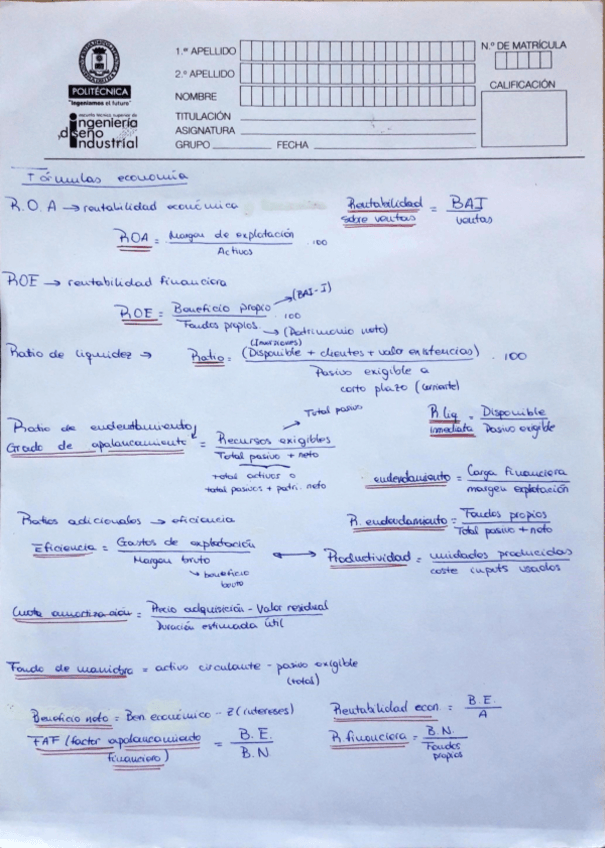 POLITÉCNICA
"Ingeniamos el futuro"
escuela técnica superior de
ingeniería
y diseño
industrial
1.er APELLIDO
2.º APELLIDO
NOMBRE
TITULACIÓN
ASIGNATURA
GRUPO FECHA
N.º DE MATRÍCULA
CALIFICACIÓN
Fórmulas economía
R.O.A → rentabilidad económica
Rentabilidad sobre ventas = BAI / ventas
ROA = Margen de explotación / Activos · 100
ROE → rentabilidad financiera
ROE = Beneficio propio → (BAI-I) / Fondos propios → (Patrimonio neto) · 100
Ratio de liquidez → Ratio = (Disponible + clientes + valor existencias) / Pasivo exigible a corto plazo (corriente) · 100
(Inversiones)
Ratio de endeudamiento /
Grado de apalancamiento = Recursos exigibles → Total pasivo / Total pasivo + neto
total activos o
total pasivos + patri. neto
R liq inmediata = Disponible / Pasivo exigible
endeudamiento = Carga financiera / margen explotación
Ratios adicionales → eficiencia
R. endeudamiento = Fondos propios / Total pasivo + neto
Eficiencia = Gastos de explotación / Margen bruto ↔ Productividad = unidades producidas / coste inputs usados
→ beneficio bruto
Cuota amortización = Precio adquisición - Valor residual / Duración estimada útil
Fondo de maniobra = activo circulante - pasivo exigible
(total)
Beneficio neto = Ben económico - Z (intereses)
Rentabilidad econ. = B.E. / A
FAF (factor apalancamiento financiero) = B.E. / B.N.
R. financiera = B.N. / Fondos propios